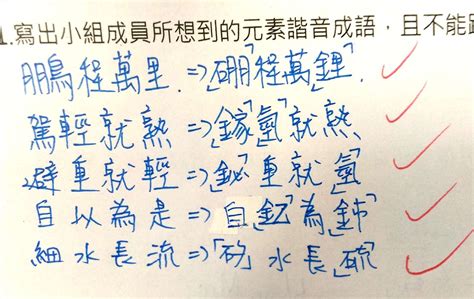 1.寫出小組成員所想到的元素諧音成語，且不能
鵬程萬里.=>「硼」程萬「鋰」.
駕輕就熟=>「鎵」「氫」就熟
避重就輕=>「鉍」重就「氫」
自以為是=>自「釔」為「鈰」
細水長流=>「矽」水長「硫」